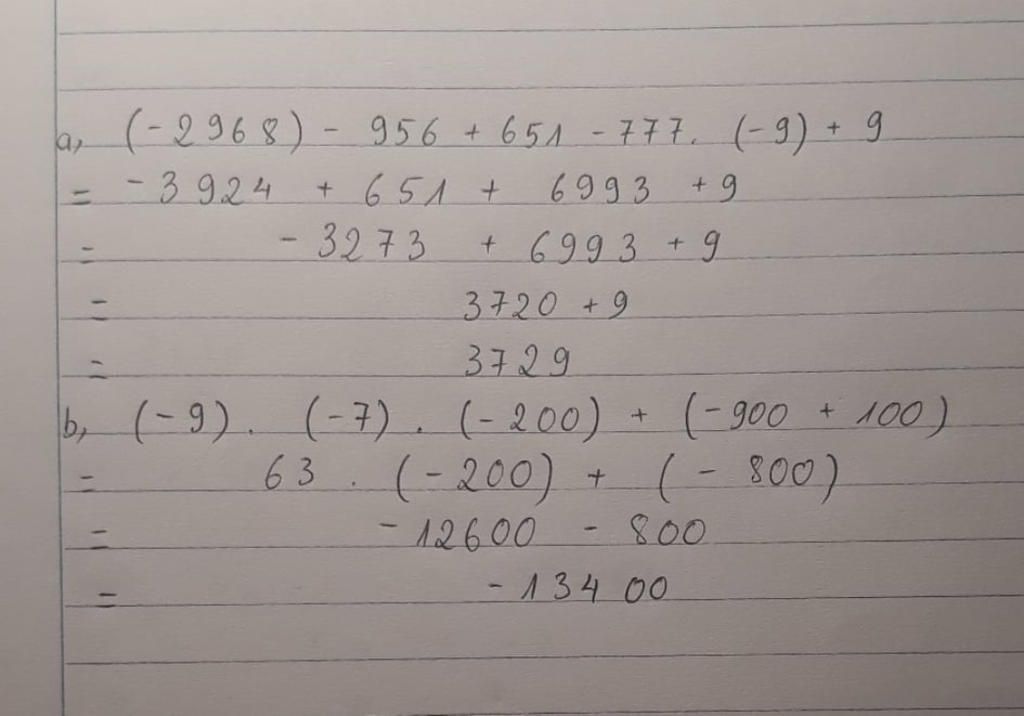 a, (-2968) - 956 + 651 - 777. (-9) + 9
= -3924 + 651 + 6993 + 9
= -3273 + 6993 + 9
= 3720 + 9
= 3729
b, (-9) . (-7) . (-200) + (-900 + 100)
= 63 . (-200) + (- 800)
= -12600 - 800
= -13400